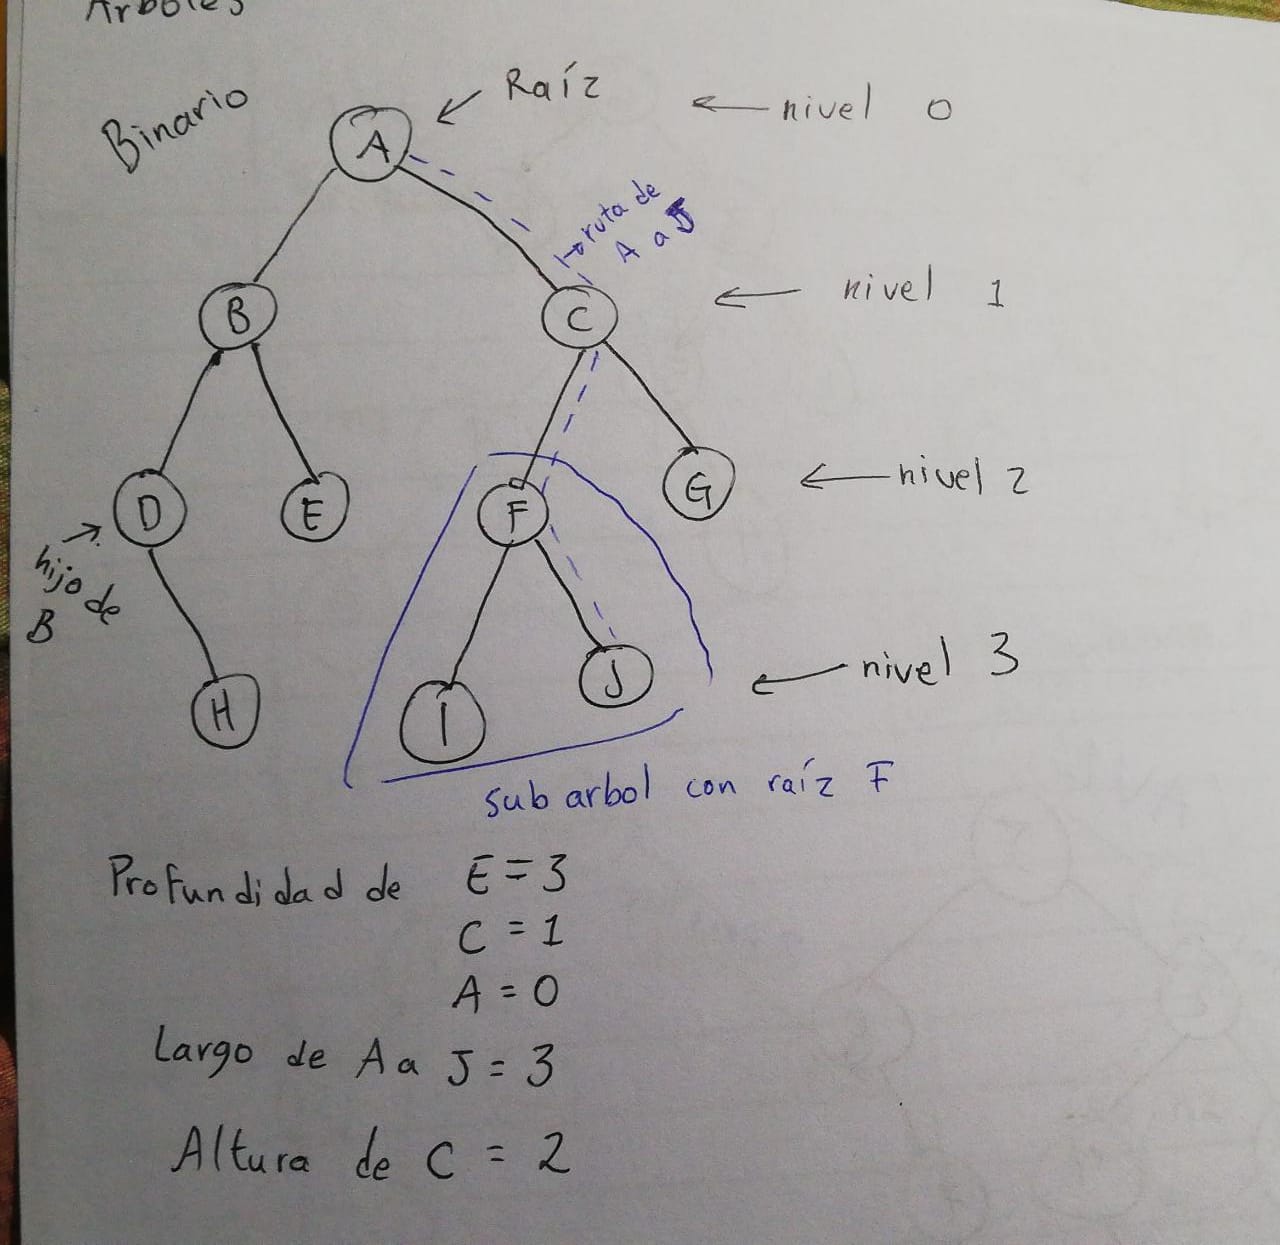 Arboles
Binario
A
Raíz
nivel 0
ruta de
A a J
B
C
nivel 1
D
E
F
G
nivel 2
hijo de
B
H
I
J
nivel 3
sub arbol con raíz F
Profundidad de E = 3
C = 1
A = 0
Largo de A a J = 3
Altura de C = 2